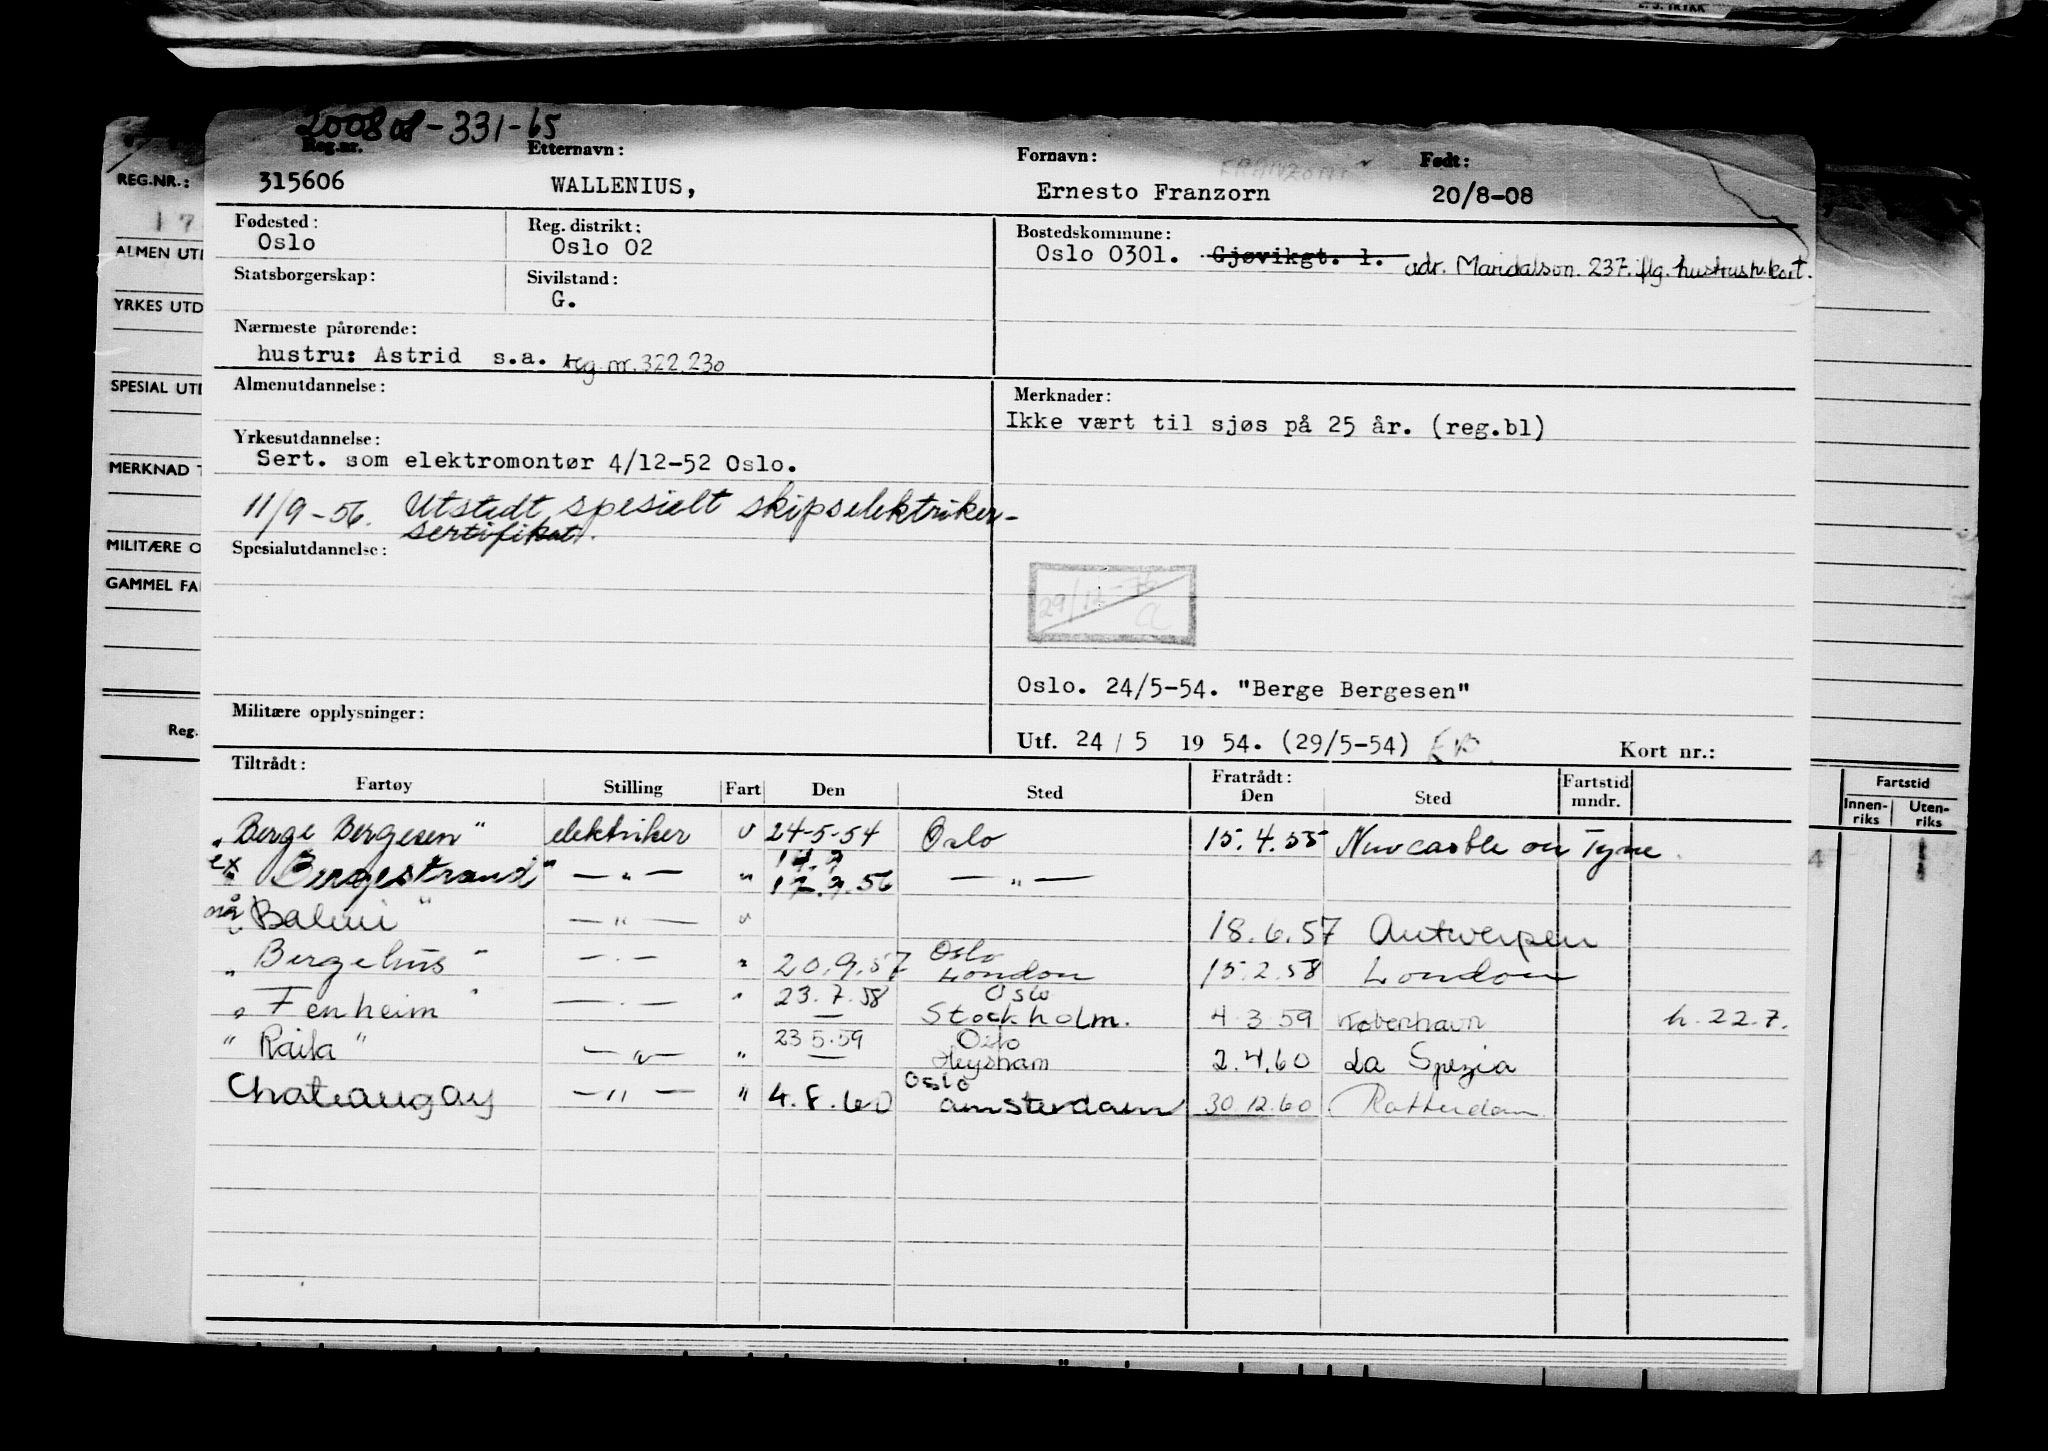 200808-331-65
Reg.nr. Etternavn: Fornavn: FRANZONI Født:
315606 WALLENIUS, Ernesto Franzorn 20/8-08
REG.NR.:
17
ALMEN UTD
YRKES UTD
SPESIAL UTD
MERKNAD T
MILITÆRE O
GAMMEL FA
Reg.
Fødested: Reg. distrikt: Bostedskommune:
Oslo Oslo 02 Oslo 0301. Gjøvikgt. 1. adr. Maridalsvn. 237. iflg. hustrus h.kort.
Statsborgerskap: Sivilstand:
G.
Nærmeste pårørende:
hustru: Astrid s.a. reg. nr. 322.230
Almenutdannelse: Merknader:
Ikke vært til sjøs på 25 år. (reg.bl)
Yrkesutdannelse:
Sert. som elektromontør 4/12-52 Oslo.
11/9-56. Utstedt spesielt skipselektriker-
sertifikat.
Spesialutdannelse:
29/12-76
Oslo. 24/5-54. "Berge Bergesen"
Militære opplysninger:
Utf. 24 / 5 19 54. (29/5-54) Kort nr.:
Tiltrådt: Fratrådt: Fartstid
Fartøy Stilling Fart Den Sted Den Sted mndr.
Fartstid
Innen-riks Uten-riks
"Berge Bergesen" elektriker v 24-5-54 Oslo 15.4.55 Newcastle on Tyne.
ex "Bergestrand" — " — " 17.9.56 — " —
nå "Baluri" — " — v 18.6.57 Antwerpen
"Bergehus" — " — " 20.9.57 Oslo London 15.2.58 London
"Fenheim" — " — " 23.7.58 Oslo Stockholm. 4.3.59 København h. 22.7.
"Raila" — " — " 23.5.59 Oslo Heysham 2.4.60 La Spezia
Chateaugay — " — " 4.8.60 Oslo Amsterdam 30.12.60 Rotterdam